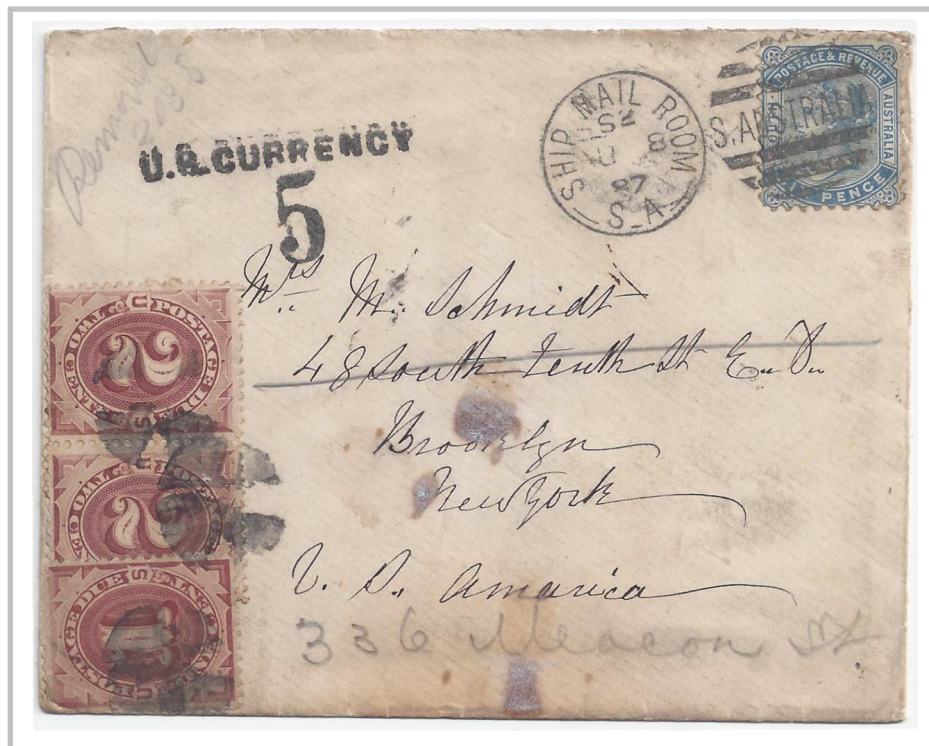 U.S. CURRENCY
5
SHIP MAIL ROOM
S2
JU 8
87
S.A
S. AUSTRALIA
POSTAGE & REVENUE
AUSTRALIA
SIX PENCE
Mrs. M. Schmidt
48 South Tenth St E. D.
Brooklyn
New York
U. S. America
336 Macon St
POSTAGE DUE
TWO CENTS
2
US
POSTAGE DUE
TWO CENTS
2
POSTAGE DUE
ONE CENT
1